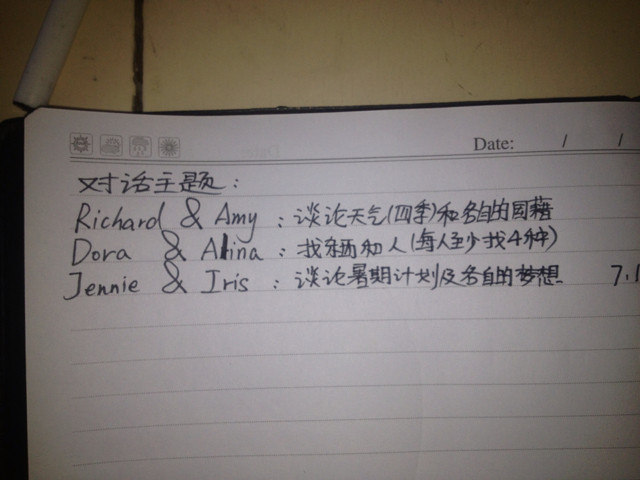 Date: / /
对话主题:
Richard & Amy : 谈论天气(四季)和各自的国籍
Dora & Alina : 找东西和人(每人至少找4种)
Jennie & Iris : 谈论暑期计划及各自的梦想 7.1